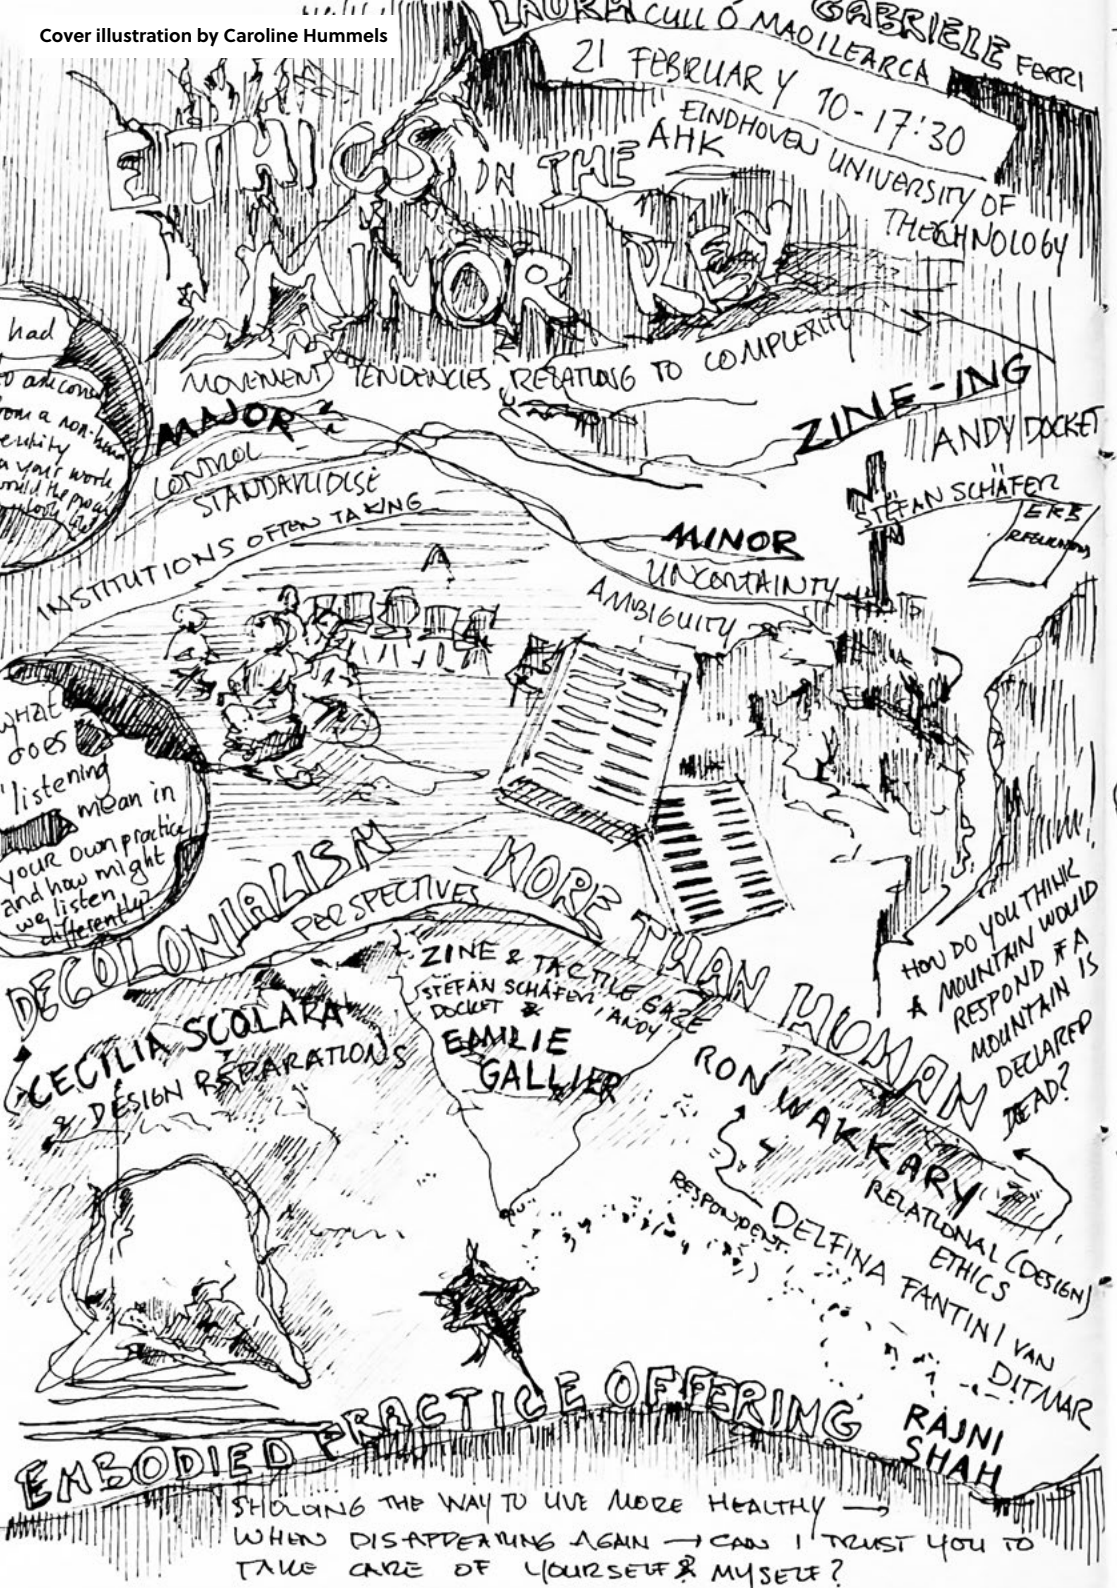 Cover illustration by Caroline Hummels
LAURA CULL Ó MAOILEARCA
GABRIELE FERRI
21 FEBRUARY 10-17:30
EINDHOVEN UNIVERSITY OF
THECHNOLOGY
AHK
ETHICS IN THE
MINOR KEY
MOVEMENT TENDENCIES RELATING TO COMPLEXITY
MAJOR
CONTROL
STANDARIDISE
INSTITUTIONS OFTEN TAKING
ZINE-ING
ANDY DOCKET
STEFAN SCHÄFER
ERB
MINOR
UNCONTAINTY
AMBIGUITY
had
from a non-human
your work
would the
what
does
'listening
mean in
your own practice
and how might
we listen
differently?
DECOLONIALISM
PERSPECTIVES
MORE THAN HUMAN
HOW DO YOU THINK
A MOUNTAIN WOULD
RESPOND IF A
MOUNTAIN IS
DECLARED
DEAD?
CECILIA SCOLARA
& DESIGN REPARATIONS
ZINE & TACTILE GAZE
STEFAN SCHÄFER, ANDY
DOCKET &
EMILIE
GALLIER
RON WAKKARY
RELATIONAL (DESIGN)
ETHICS
RESPONDENT
DELFINA FANTINI VAN
DITMAR
EMBODIED PRACTICE OFFERING
RAJNI
SHAH
THE WAY TO LIVE MORE HEALTHY →
WHEN DISAPPEARING AGAIN → CAN I TRUST YOU TO
TAKE CARE OF YOURSELF & MYSELF?